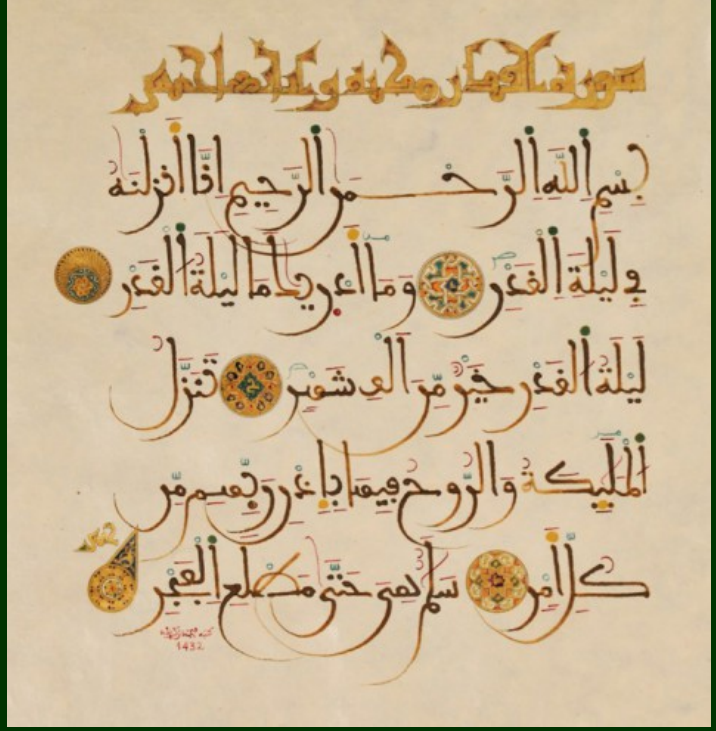 سورة القدر مكية وآياتها خمس
بِسْمِ اللَّهِ الرَّحْمَنِ الرَّحِيمِ إِنَّا أَنزَلْنَهُ
فِي لَيْلَةِ الْقَدْرِ وَمَا أَدْرِيكَ مَا لَيْلَةُ الْقَدْرِ
لَيْلَةُ الْقَدْرِ خَيْرٌ مِّنْ أَلْفِ شَهْرٍ تَنَزَّلُ
الْمَلَئِكَةُ وَالرُّوحُ فِيهَا بِإِذْنِ رَبِّهِم مِّن
كُلِّ أَمْرٍ سَلَمٌ هِيَ حَتَّى مَطْلَعِ الْفَجْرِ
1432